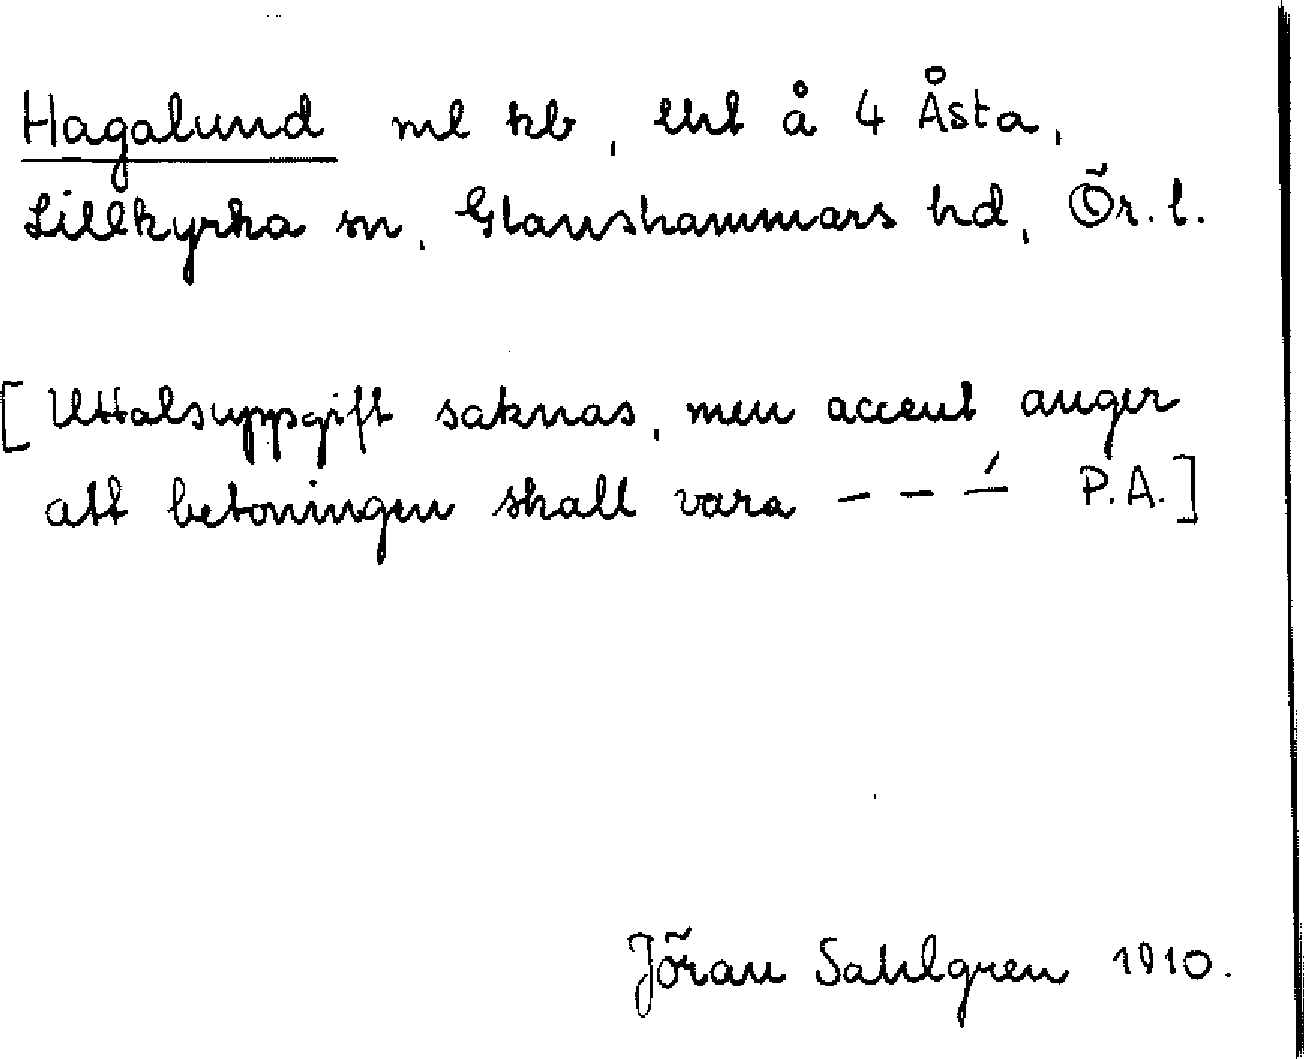 Hagalund ml kb, lht å 4 Åsta,
Lillkyrka sn, Glanshammars hd, Ör. l.
[Uttalsuppgift saknas, men accent anger
att betoningen skall vara – – –́ P.A.]
Jöran Sahlgren 1910.